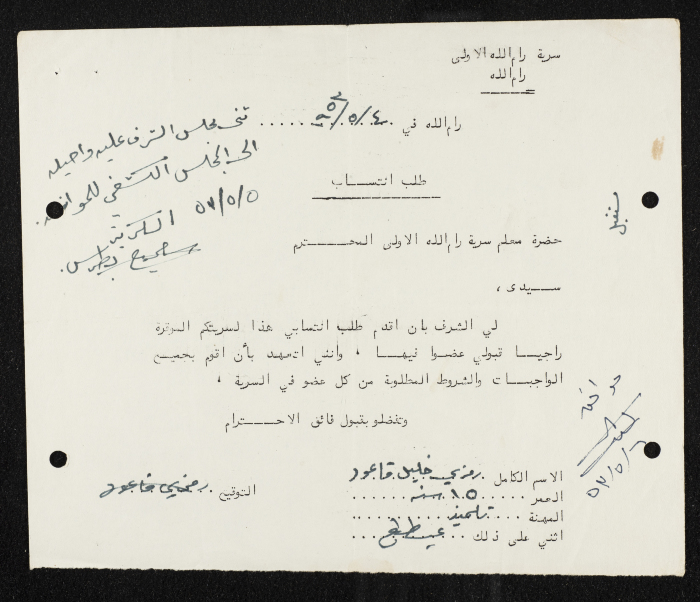 سرية رام الله الاولى
رام الله
رام الله في ٤/٥/٥٢
طلب انتساب
حضرة معلم سرية رام الله الاولى المحترم
سيدى ،
لي الشرف بان اقدم طلب انتسابي هذا لسريتكم الموقرة
راجيا قبولي عضوا فيها ، وانني اتعهد بأن اقوم بجميع
الواجبات والشروط المطلوبة من كل عضو في السرية ،
وتفضلو بقبول فائق الاحترام
الاسم الكامل رمزي خليل قاعود
العمر ١٥ سنه
المهنة تلميذ
اثني على ذلك
التوقيع رمزي قاعود
مجلس الشرف عليه واحيله
الى المجلس الكشفي
٥٢/٥/٥
السكرتير
مستقبل
٥٢/٥/٦